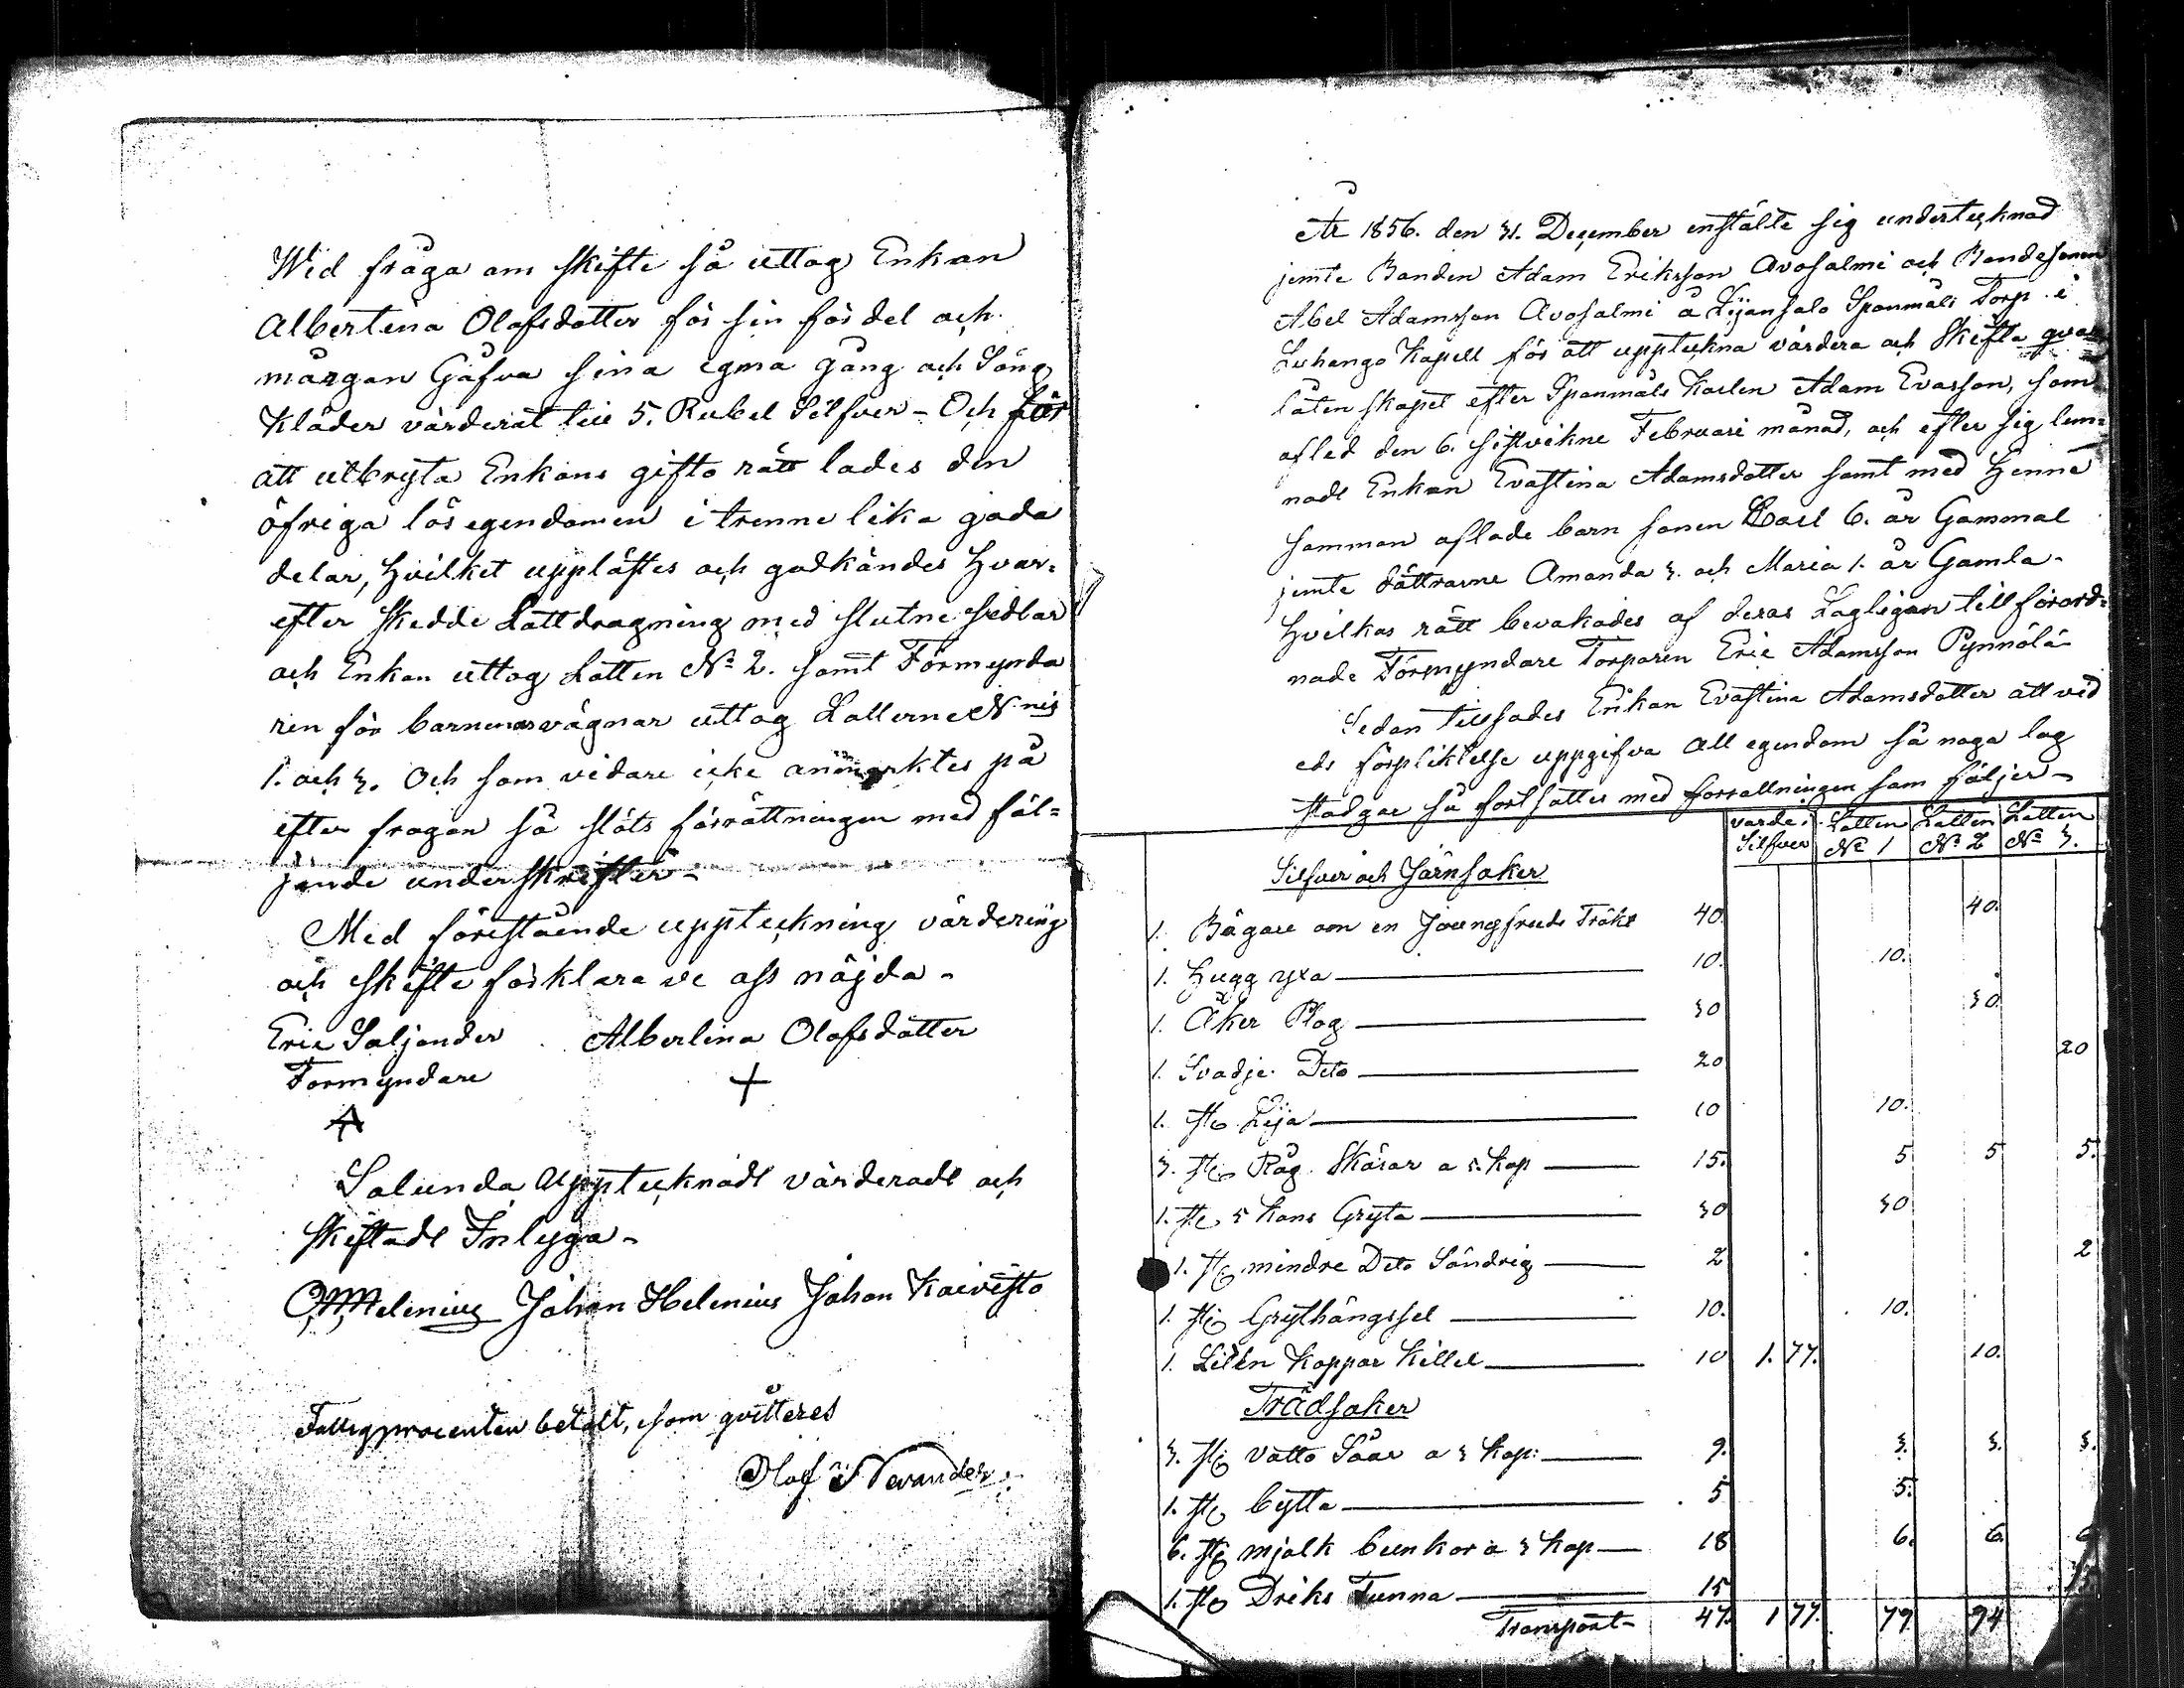 Wid fråga om skifte så uttog Enkan
Albertina Olofsdotter för sin fördel och
morgan Gåfva sina egma gång och Säng
Kläder värderat till 5. Rubel Silfver - Och för
att utbryta Enkans gifto rätt lades den
öfriga lös egendomen i trenne lika goda
delar, hvilket upplästes och godkändes hvar=
efter skedde Lottdragning med slutne sedlar
och Enkan uttog Lotten No 2. samt Förmynda
ren för barnenas vägnar uttog Lotterne Nris
1. och 3. Och som vidare icke anmarktes på
efter fragan så slöts förrättningen med föl=
jande underskrifter -
Med förestående uppteckning värdering
och skifte förklara vi oss nöjda -
Eric Saljander Albertina Olofsdotter
Formyndare +
A
Salunda Upptecknadt värderadt och
skiftadt Intyga -
Johan Helenius Johan Kaivisto
Fattigprocenten betalt, som qvitteres
Olof Nevander
År 1856. den 31. December enstälte sig undertecknad
jemte Bonden Adam Eriksson Avosalmi och Bondesonen
Abel Adamsson Avosalmi å Lijansalo Spanmåls Torp i
Luhango Kapell för att uppteckna värdera och Skifta qvar
låtenskapet efter Spanmåls Karlen Adam Evasson, som
afled den 6. sistvikne Februari månad, och efter sig lem=
nadt Enkan Evastina Adamsdotter samt med Henne
samman aflade barn sonen Karl 6. år Gammal
jemte döttrarne Amanda 3. och Maria 1. år Gamla -
Hvilkas rätt bevakades af deras Lagligen till förord=
nade Förmyndare Torparen Eric Adamsson Pynnölä
Sedan tillsades Enkan Evastina Adamsdotter att vid
eds förpliktelse uppgifva all egendom så noga lag
stadgar så fortsattes med forrattningen som följer -
varde i Silfver Lotten No 1 Lotten No 2 Lotten No 3.
Silfver och Järnsaker
1. Bägare om en Joungfrudt Träkt 40. 40.
1. Hugg yxa 10. 10.
1. Åker Plog 30 30
1. Svadje Dito 20 20
1. st Lija 10 10.
3. st Råg Skäror a 5. kop 15. 5 5 5.
1. st 5 kans Gryta 30 30
1. st mindre Dito Söndrig 2 2
1. st Grythängssel 10. 10.
1. Liten koppar Kittel 10 1.77. 10.
Trädsaker
3. st vatto Såar a 3 kop: 9. 3. 3. 3.
1. st bytta 5 5.
6. st mjolk bunkor a 3 kop 18 6. 6. 6
1. st Driks Tunna 15 15
Transport - 47. 1 77. 79 94